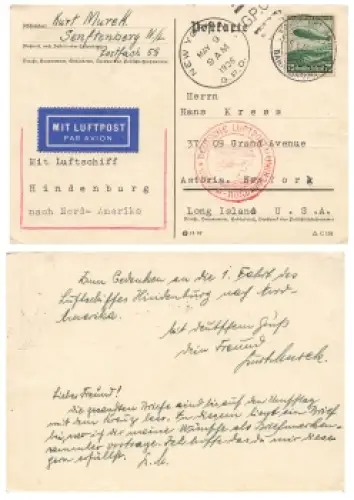 Absender:
Kurt Mureck
Senftenberg N/L
Postfach 59
Postkarte
NEW YORK
MAY
9 AM
1936
G.P.O.
G.P.O.
75
MIT LUFTPOST
PAR AVION
Mit Luftschiff
Hindenburg
nach Nord-Amerika
Herrn
Hans Kress
37 09 Grand Avenue
Astoria. New York
Long Island U. S. A.
DEUTSCHE LUFTPOST
C 154
Zum Gedenken an die 1. Fahrt des
Luftschiffes Hindenburg nach Nord-
Amerika.
Mit deutschem Gruß
Dein Freund
Kurt Mureck.
Lieber Freund!
die gesandten Briefe sind bis auf den Umschlag
mit dem Kreuz leer. In diesem liegt ein Brief
bei, wo ich der meine Wünsche als Briefmarken-
sammler vortrage. Ich hoffe das du mir diese
gern erfüllst.